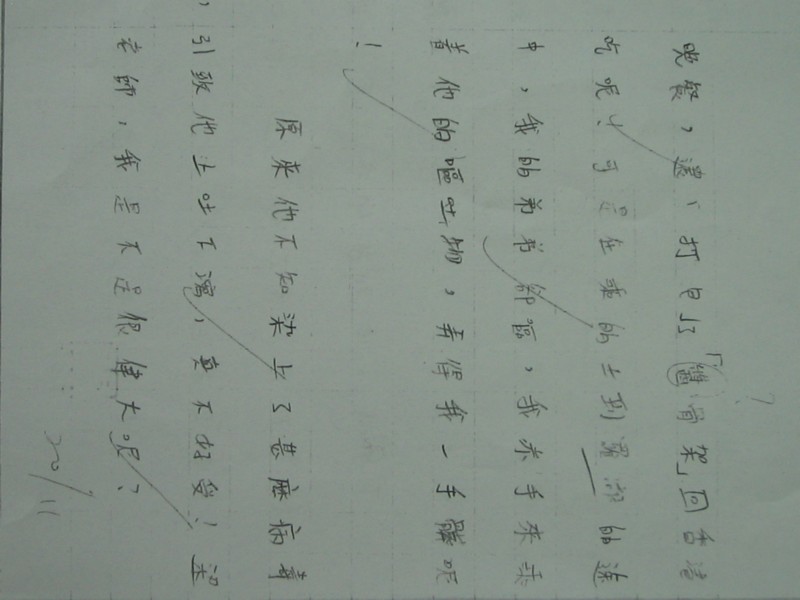 晚餐，還、打包了「醬骨架」回香港
吃呢！可是在乘的士到羅湖的途
中，我的弟弟卻嘔，我赤手來乘
着他的嘔吐物，弄得我一手髒呢
！
原來他不知染上了甚麼病毒
，引致他上吐下瀉，真不好受！梁
老師，我是不是很偉大呢？
20/11